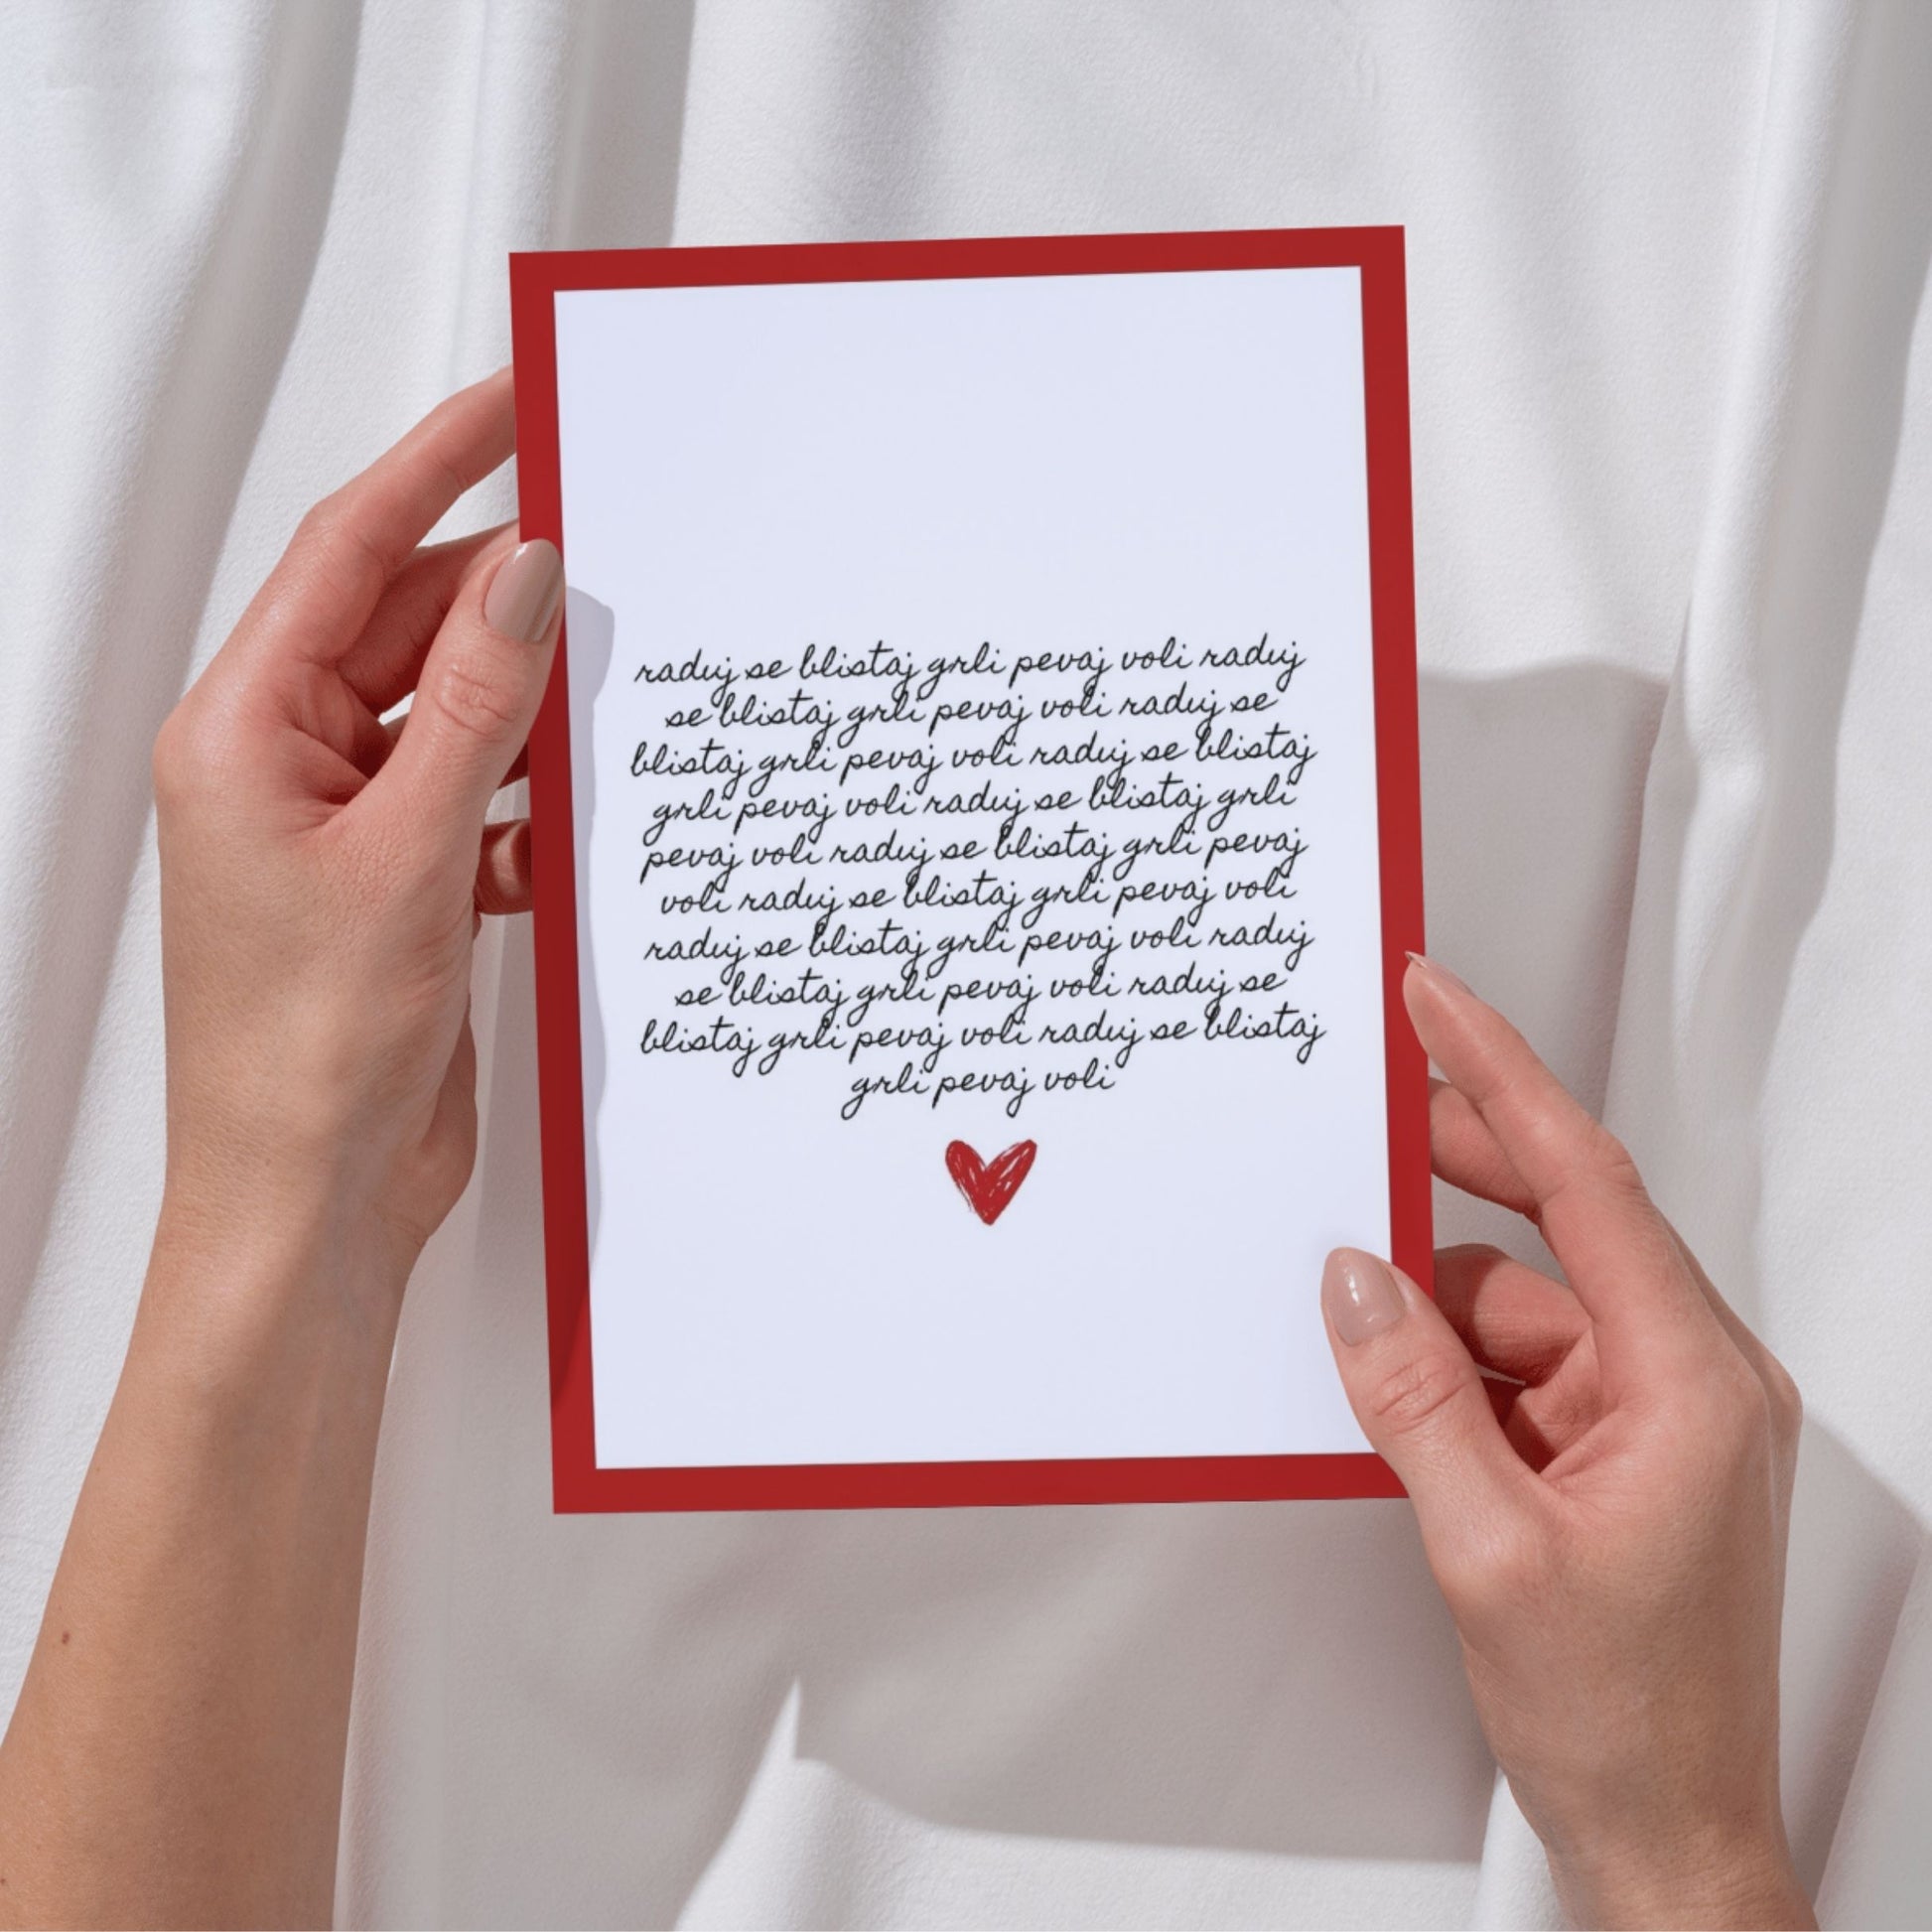 raduj se blistaj grli pevaj voli raduj
se blistaj grli pevaj voli raduj se
blistaj grli pevaj voli raduj se blistaj
grli pevaj voli raduj se blistaj grli
pevaj voli raduj se blistaj grli pevaj
voli raduj se blistaj grli pevaj voli
raduj se blistaj grli pevaj voli raduj
se blistaj grli pevaj voli raduj se
blistaj grli pevaj voli raduj se blistaj
grli pevaj voli